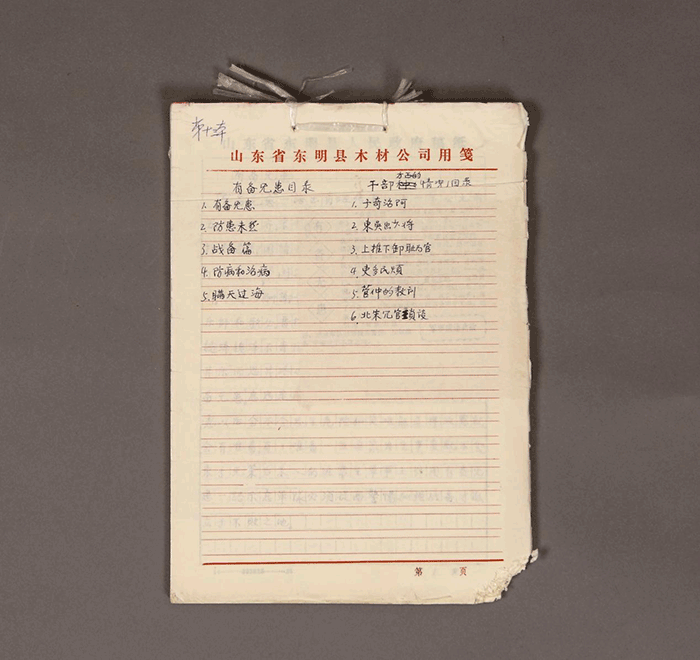 第十三本
山东省东明县木材公司用笺
有备无患目录
1. 有备无患
2. 防患未然
3. 战备篇
4. 防病和治病
5. 瞒天过海
干部方面的情况目录
1. 子奇治阿
2. 东吴出少将
3. 上推下卸耻为官
4. 吏多民烦
5. 管仲的教训
6. 北宋冗官赘谈
第 页